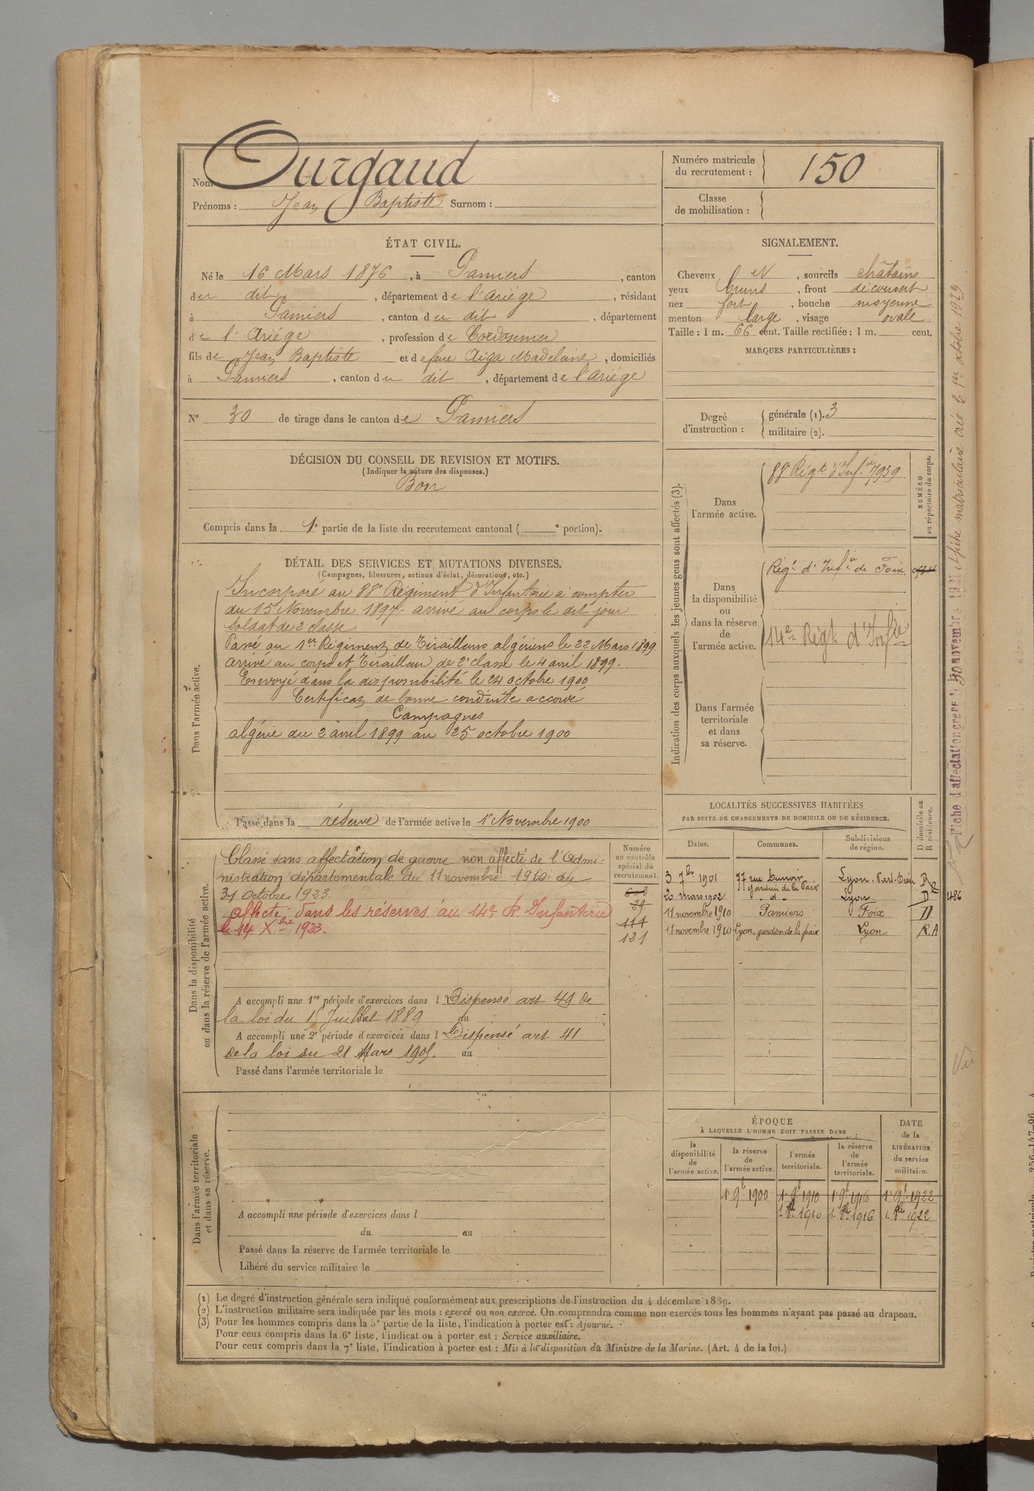 Nom Ourgaud
Prénoms : Jean Baptiste Surnom :
Numéro matricule du recrutement : 150
Classe de mobilisation :
ÉTAT CIVIL.
Né le 16 Mars 1876, à Pamiers, canton
du dit, département de l'Ariége, résidant
à Pamiers, canton du dit, département
de l'Ariége, profession de Cordonnier
fils de Jean Baptiste et de feue Aiga Madeleine, domiciliés
à Pamiers, canton du dit, département de l'Ariége
N° 30 de tirage dans le canton de Pamiers
SIGNALEMENT.
Cheveux et sourcils châtains
yeux bruns, front découvert
nez fort, bouche moyenne
menton large, visage ovale
Taille : 1 m. 66 cent. Taille rectifiée : 1 m. cent.
MARQUES PARTICULIÈRES :
Degré d'instruction : générale (1). 3
militaire (2).
DÉCISION DU CONSEIL DE REVISION ET MOTIFS.
(Indiquer la nature des dispenses.)
Bon
Compris dans la 1e partie de la liste du recrutement cantonal ( e portion).
DÉTAIL DES SERVICES ET MUTATIONS DIVERSES.
(Campagnes, blessures, actions d'éclat, décorations, etc.)
Dans l'armée active.
Incorporé au 88e Régiment d'Infanterie à compter
du 15 Novembre 1897. arrivé au corps le dit jour
soldat de 2e classe
Passé au 1er Régiment de Tirailleurs algériens le 22 Mars 1899
arrivé au corps et Tirailleur de 2e classe le 4 avril 1899.
Envoyé dans la disponibilité le 24 octobre 1900
Certificat de bonne conduite accordé
Campagnes
algérie du 2 avril 1899 au 25 octobre 1900
Passé dans la réserve de l'armée active le 1er Novembre 1900
Indication des corps auxquels les jeunes gens sont affectés (3).
NUMÉRO au répertoire du corps.
Dans l'armée active.
88e Régt d'Infie 7939
Dans la disponibilité ou dans la réserve de l'armée active.
Régt d'Infie de Foix
14e Régt d'Infie
Dans l'armée territoriale et dans sa réserve.
Fiche d'affectation créée le 30 novembre 1921
et fiche matriculaire créé le 1er octobre 1929
Dans la disponibilité ou dans la réserve de l'armée active.
Classé sans affectation de guerre non affecté de l'Admi-
nistration départementale du 11 novembre 1910 au
31 octobre 1923
affecté dans les réserves au 14e R Infanterie
le 14 Xbre 1923.
Numéro au contrôle spécial du recrutement.
114
121
A accompli une 1re période d'exercices dans l Dispensé art 49 de
la loi du 15 Juillet 1889 au
A accompli une 2e période d'exercices dans l Dispensé art 41
de la loi du 21 Mars 1905. au
Passé dans l'armée territoriale le
LOCALITÉS SUCCESSIVES HABITÉES
PAR SUITE DE CHANGEMENTS DE DOMICILE OU DE RÉSIDENCE.
Dates. Communes. Subdivisions de région. D domicile ou R résidence.
3 7bre 1901 77 rue Lyon-Part-Dieu R
gardien de la Paix
23 mars 1902 -d- Lyon
11 novembre 1910 Pamiers Foix D
11 novembre 1910 Lyon gardien de la paix Lyon R.A
Dans l'armée territoriale et dans sa réserve.
A accompli une période d'exercices dans l
du au
Passé dans la réserve de l'armée territoriale le
Libéré du service militaire le
ÉPOQUE
À LAQUELLE L'HOMME DOIT PASSER DANS
la disponibilité de l'armée active. la réserve de l'armée active. l'armée territoriale. la réserve de l'armée territoriale. DATE de la LIBÉRATION du service militaire.
1er 9bre 1900 1er 9bre 1910 1er 9bre 1916 1er 9bre 1922
1er 8bre 1910 1er 8bre 1916 1er 8bre 1922
(1) Le degré d'instruction générale sera indiqué conformément aux prescriptions de l'instruction du 4 décembre 1889.
(2) L'instruction militaire sera indiquée par les mots : exercé ou non exercé. On comprendra comme non exercés tous les hommes n'ayant pas passé au drapeau.
(3) Pour les hommes compris dans la 5e partie de la liste, l'indication à porter est : Ajourné.
Pour ceux compris dans la 6e liste, l'indication à porter est : Service auxiliaire.
Pour ceux compris dans la 7e liste, l'indication à porter est : Mis à la disposition du Ministre de la Marine. (Art. 4 de la loi.)